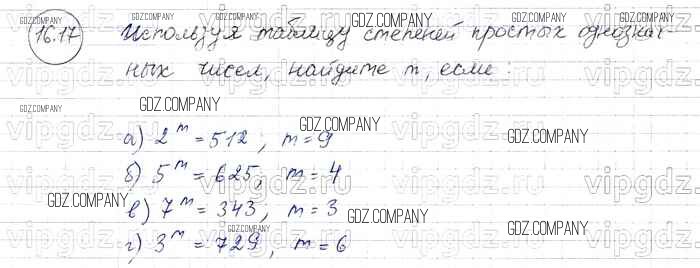 16.17 Используя таблицу степеней простых однознач-
ных чисел, найдите m, если:
а) 2^m = 512; m = 9
б) 5^m = 625, m = 4
в) 7^m = 343; m = 3
г) 3^m = 729, m = 6
GDZ.COMPANY
GDZ.COMPANY
GDZ.COMPANY
GDZ.COMPANY
GDZ.COMPANY
GDZ.COMPANY
GDZ.COMPANY
GDZ.COMPANY
GDZ.COMPANY
GDZ.COMPANY
GDZ.COMPANY
GDZ.COMPANY
vipgdz.ru
vipgdz.ru
vipgdz.ru
vipgdz.ru